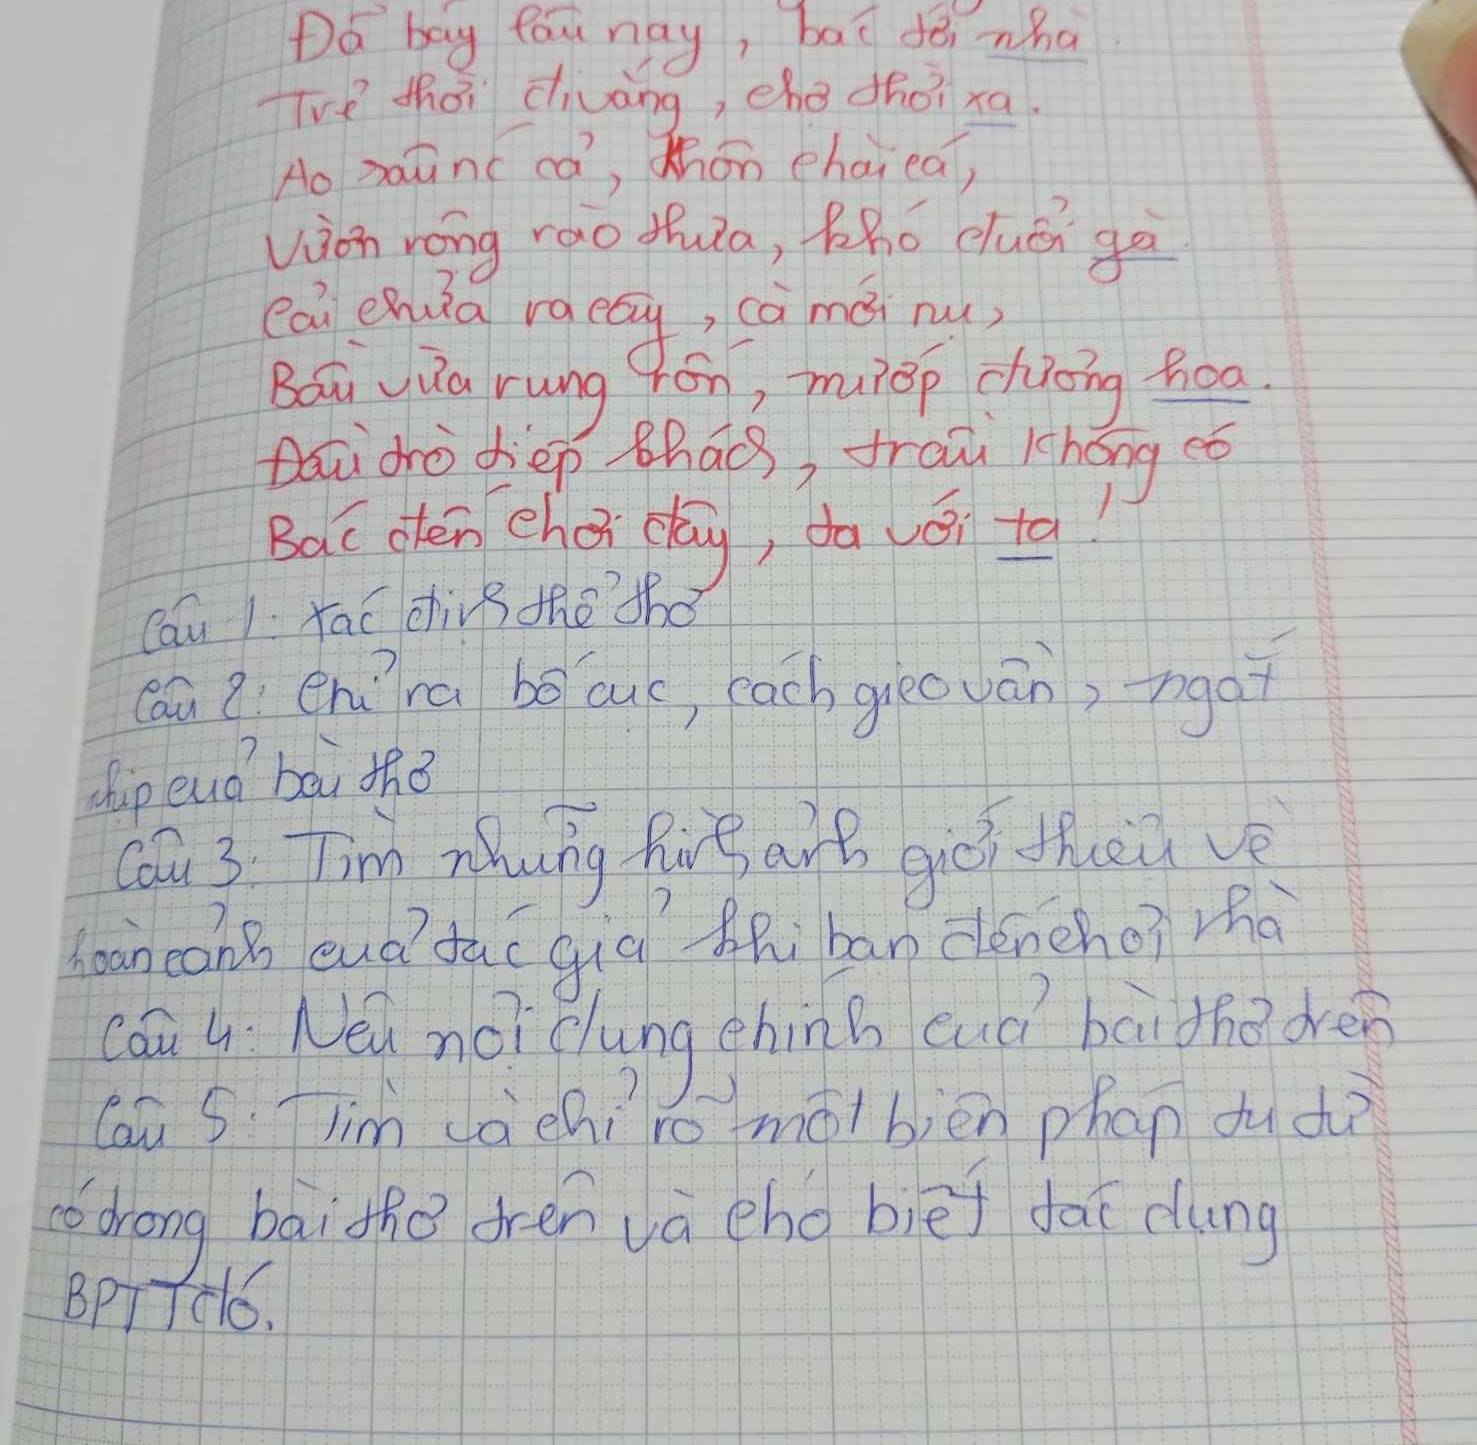 Đã bấy lâu nay, bác tới nhà.
Trẻ thời đi vắng, chợ thời xa.
Ao sâu nước cả, khôn chài cá,
Vườn rộng rào thưa, khó đuổi gà.
Cải chửa ra cây, cà mới nụ,
Bầu vừa rụng rốn, mướp đương hoa.
Đầu trò tiếp khách, trầu không có
Bác đến chơi đây, ta với ta!
Câu 1: Xác định thể thơ
Câu 2: Chỉ ra bố cục, cách gieo vần, ngắt
nhịp của bài thơ
Câu 3: Tìm những hình ảnh giới thiệu về
hoàn cảnh của tác giả khi bạn đến chơi nhà
Câu 4: Nêu nội dung chính của bài thơ trên
Câu 5: Tìm và chỉ rõ một biện pháp tu từ
có trong bài thơ trên và cho biết tác dụng
BPTT đó.